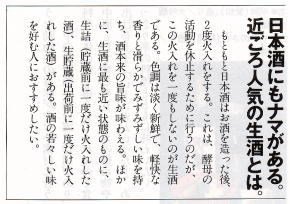 日本酒にもナマがある。
近ごろ人気の生酒とは。
もともと日本酒はお酒を造った後、
2度火入れをする。これは、酵母の
活動を休止するために行うのだが、
この火入れを一度もしないのが生酒
である。色調は淡く新鮮で、軽快な
香りと滑らかでみずみずしい味を持
ち、酒本来の旨味が味わえる。ほか
に、生酒に最も近い状態のものに、
生詰(貯蔵前に一度だけ火入れした
酒)、生貯蔵(出荷前に一度だけ火入
れした酒)がある。酒の若々しい味
を好む人におすすめしたい。